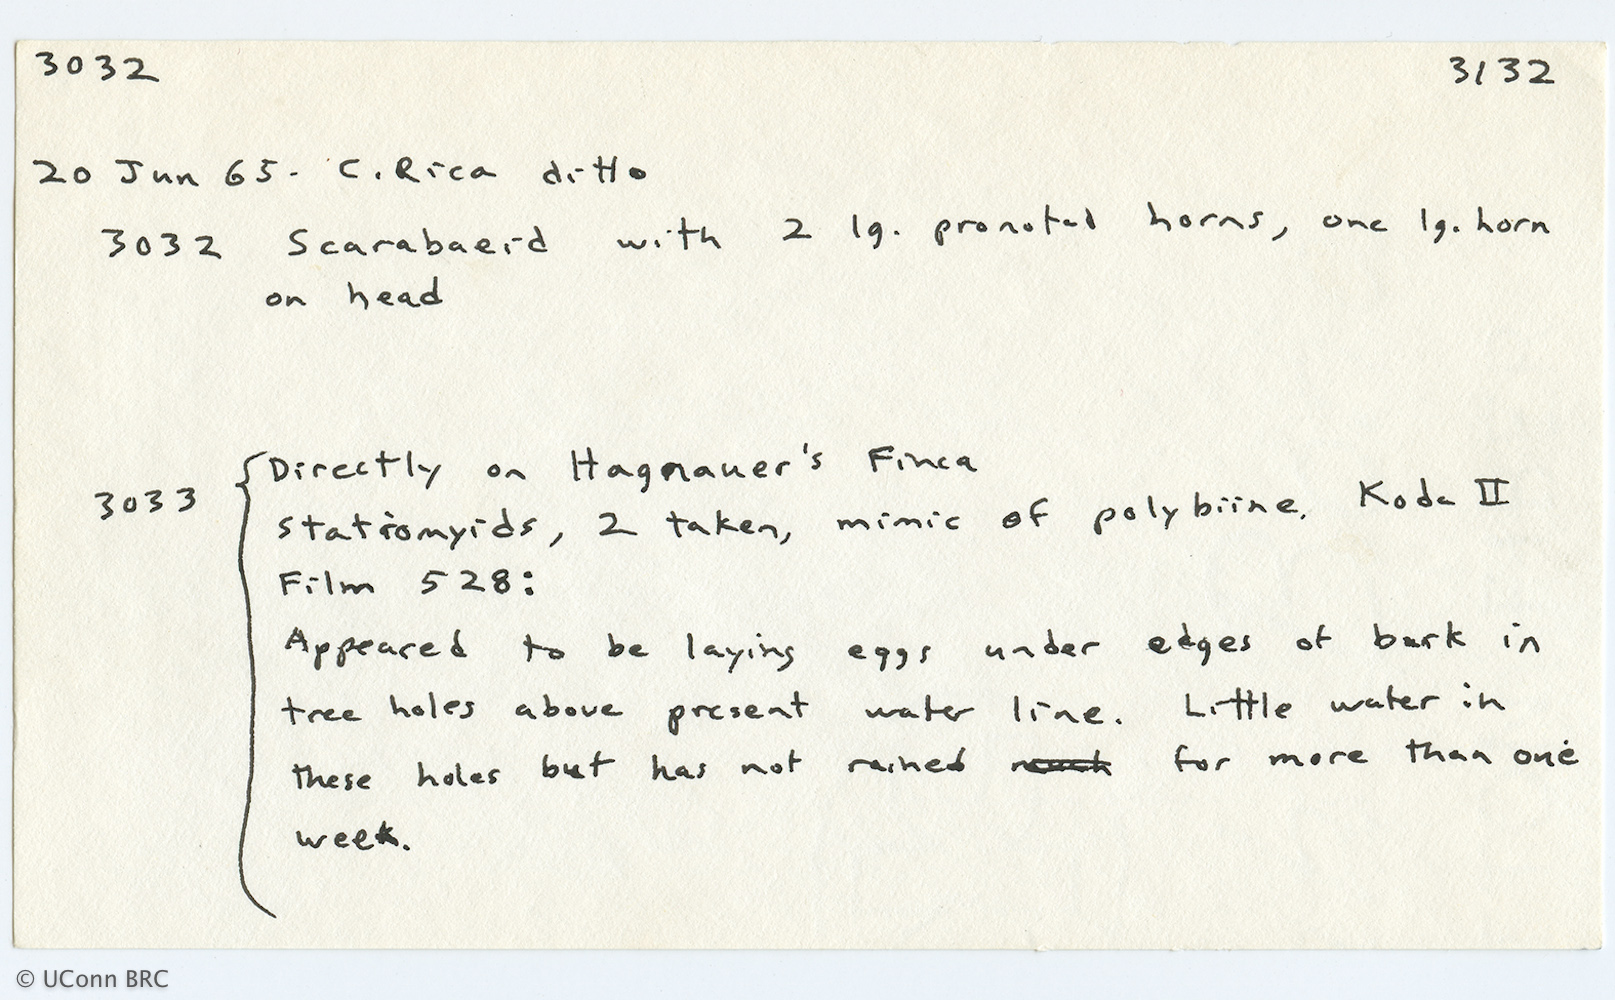 3032 3132
20 Jun 65. C. Rica ditto
3032 Scarabaeid with 2 lg. pronotal horns, one lg. horn
on head
Directly on Hagnauer's Finca
3033 statiomyids, 2 taken, mimic of polybiine. Koda II
Film 528:
Appeared to be laying eggs under edges of bark in
tree holes above present water line. Little water in
these holes but has not rained for more than one
week.
© UConn BRC